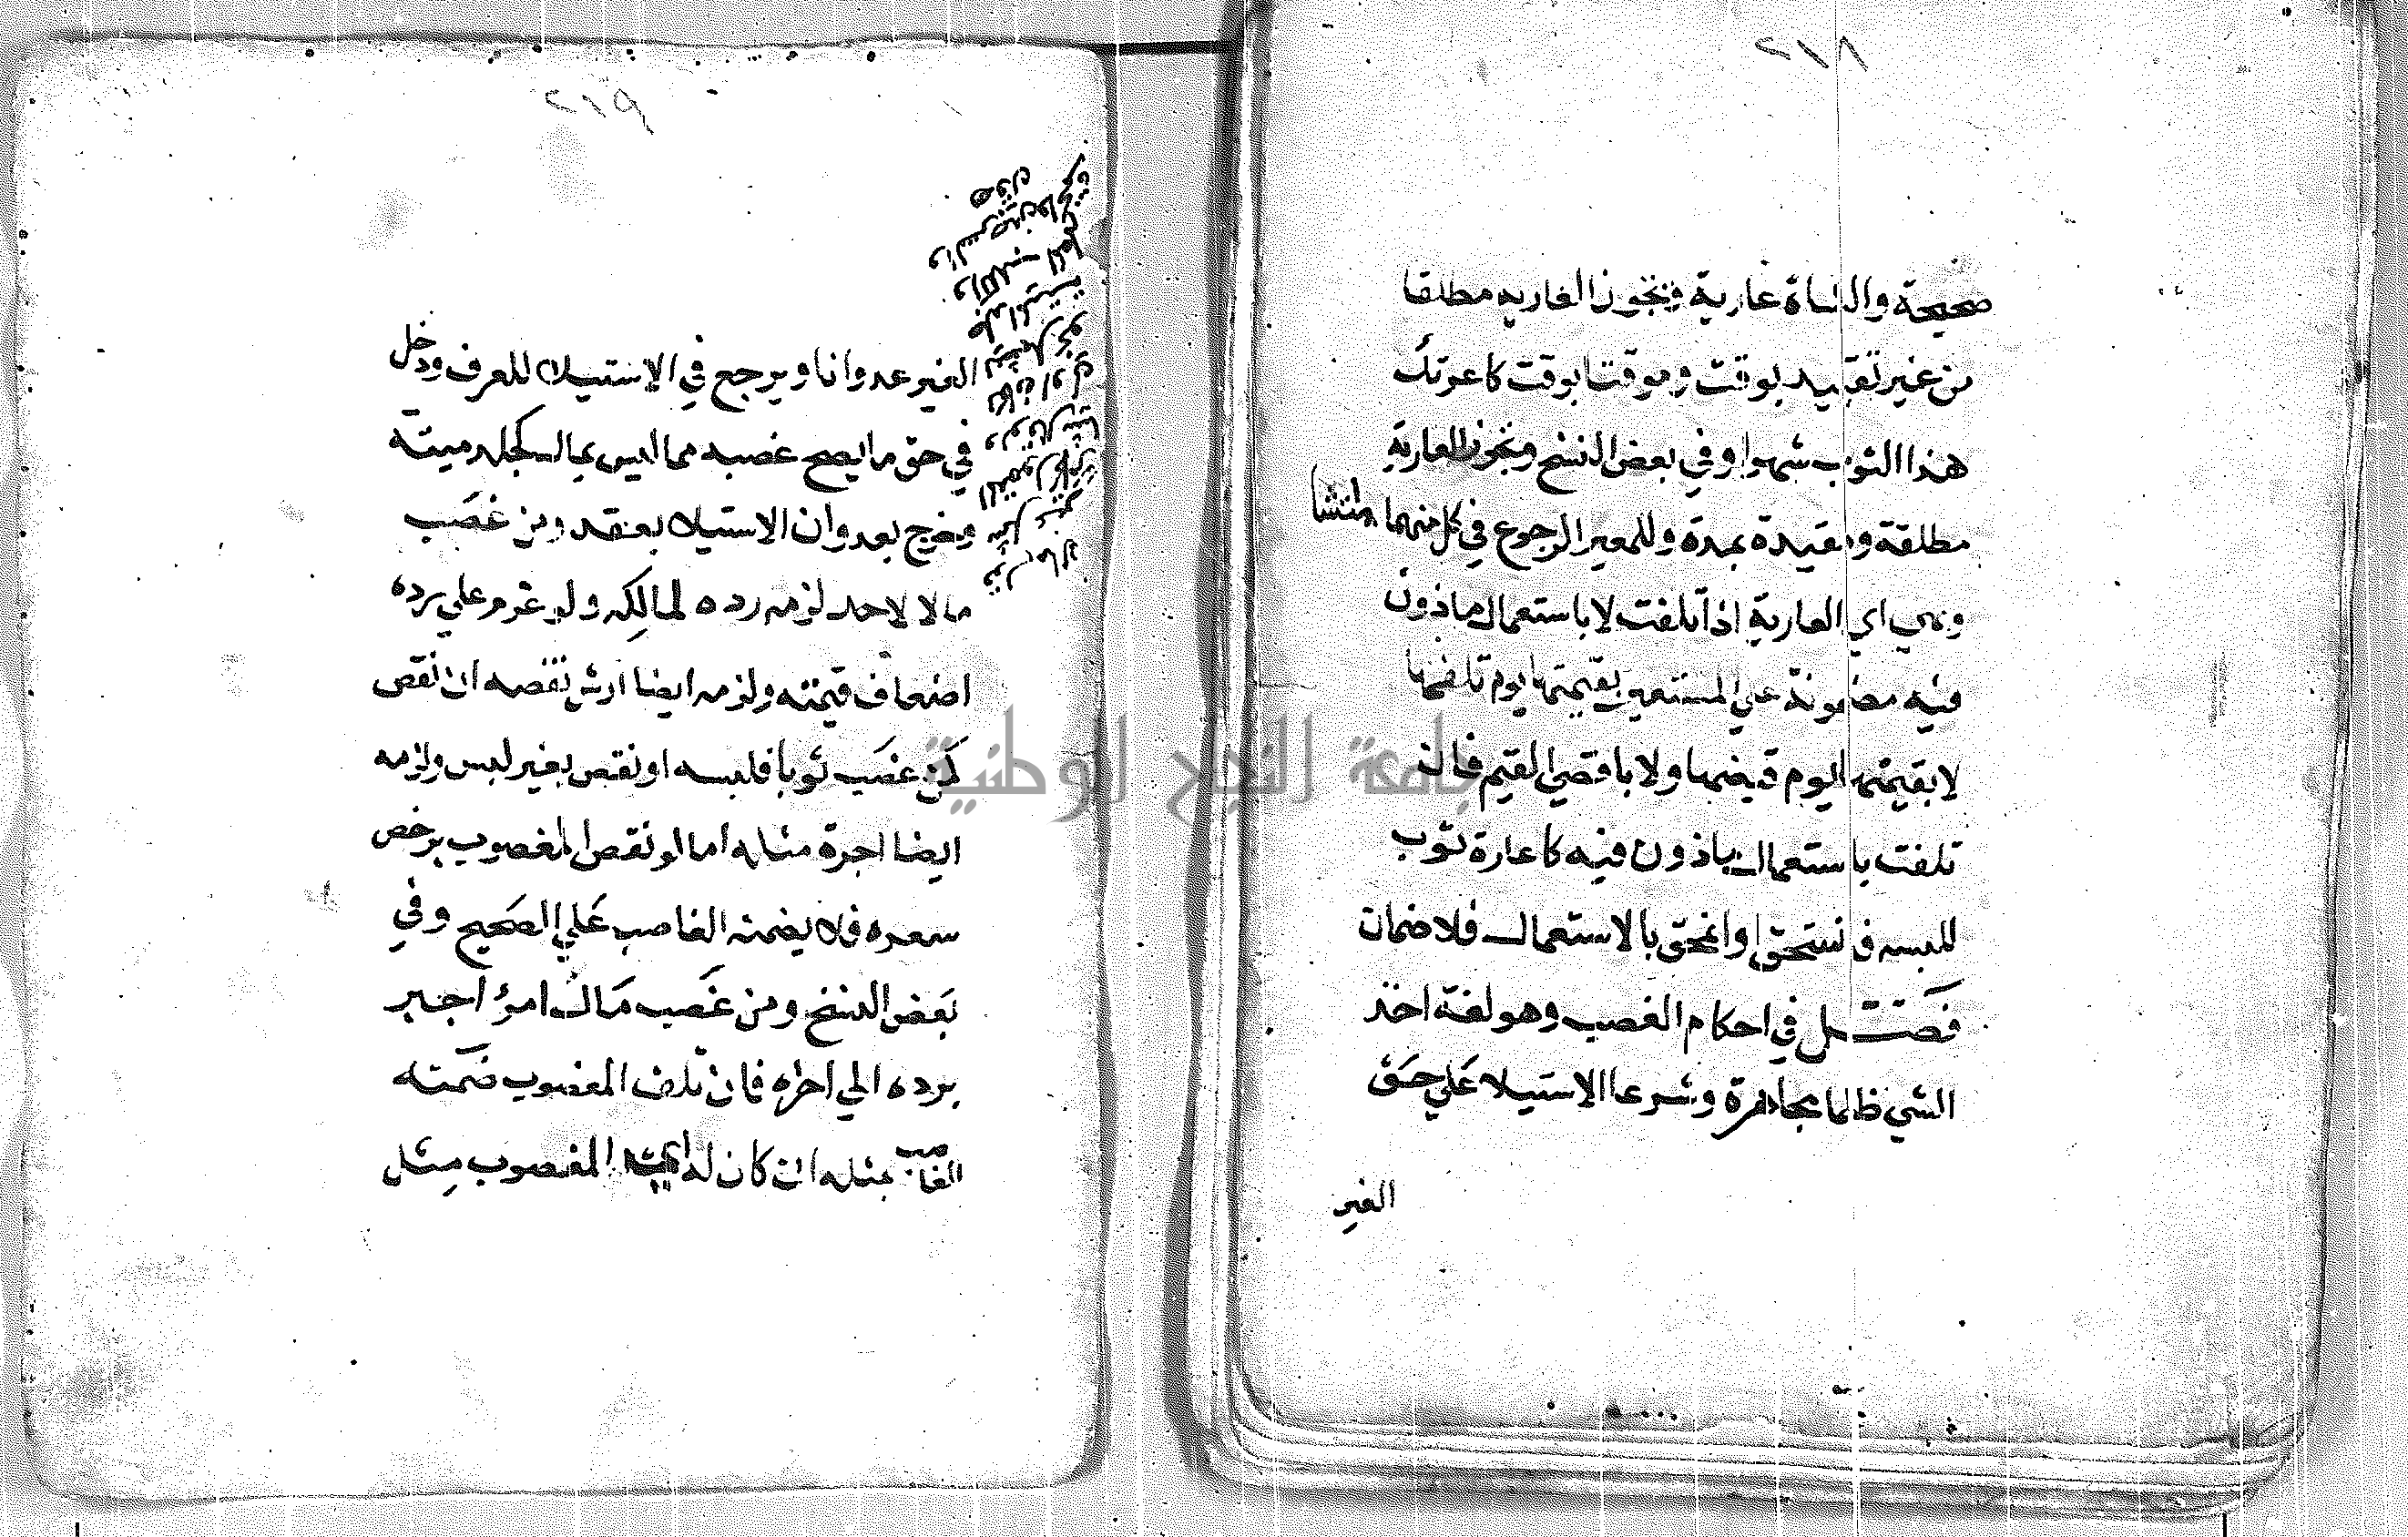 ٢١٨
صحيحة والشاة عارية وتجوز العاريه مطلقا
من غير تقييد بوقت وموقتا بوقت كاعرتك
هذا الثوب شهرا وفي بعض النسخ وتجوز العارية
مطلقة ومقيدة بمدة وللمعير الرجوع في كل منهما متىشا
وهي اي العارية اذا تلفت لا باستعمال ماذون
فيه مضمونة علي المستعير بقيمتها يوم تلفها
لا بقيمتها يوم قبضها ولا باقصي القيم فان
تلفت باستعمال ماذون فيه كاعارة ثوب
للبسه فانسحق او انمحق بالاستعمال فلا ضمان
فصل في احكام الغصب وهو لغة اخذ
الشي ظلما مجاهرة وشرعا الاستيلا علي حق
الغير
٢١٩
الغير عدوانا ويرجع في الاستيلا للعرف ودخل
في حق ما يصح غصبه مما ليس بمال كجلد ميتة
وخرج بعدوان الاستيلا بعقد ومن غصب
مالا لاحد لزمه رده لمالكه ولو غرم علي رده
اضعاف قيمته ولزمه ايضا ارش نقصه ان نقص
كمن غصب ثوبا فلبسه او نقص بغير لبس ولزمه
ايضا اجرة مثله اما لو نقص المغصوب برخص
سعره فلا يضمنه الغاصب علي الصحيح وفي
بعض النسخ ومن غصب مال امرؤ اجبر
برده الي اخره فان تلف المغصوب ضمنه
الغاصب بمثله ان كان له المغصوب مثل
جامعة النجاح الوطنية